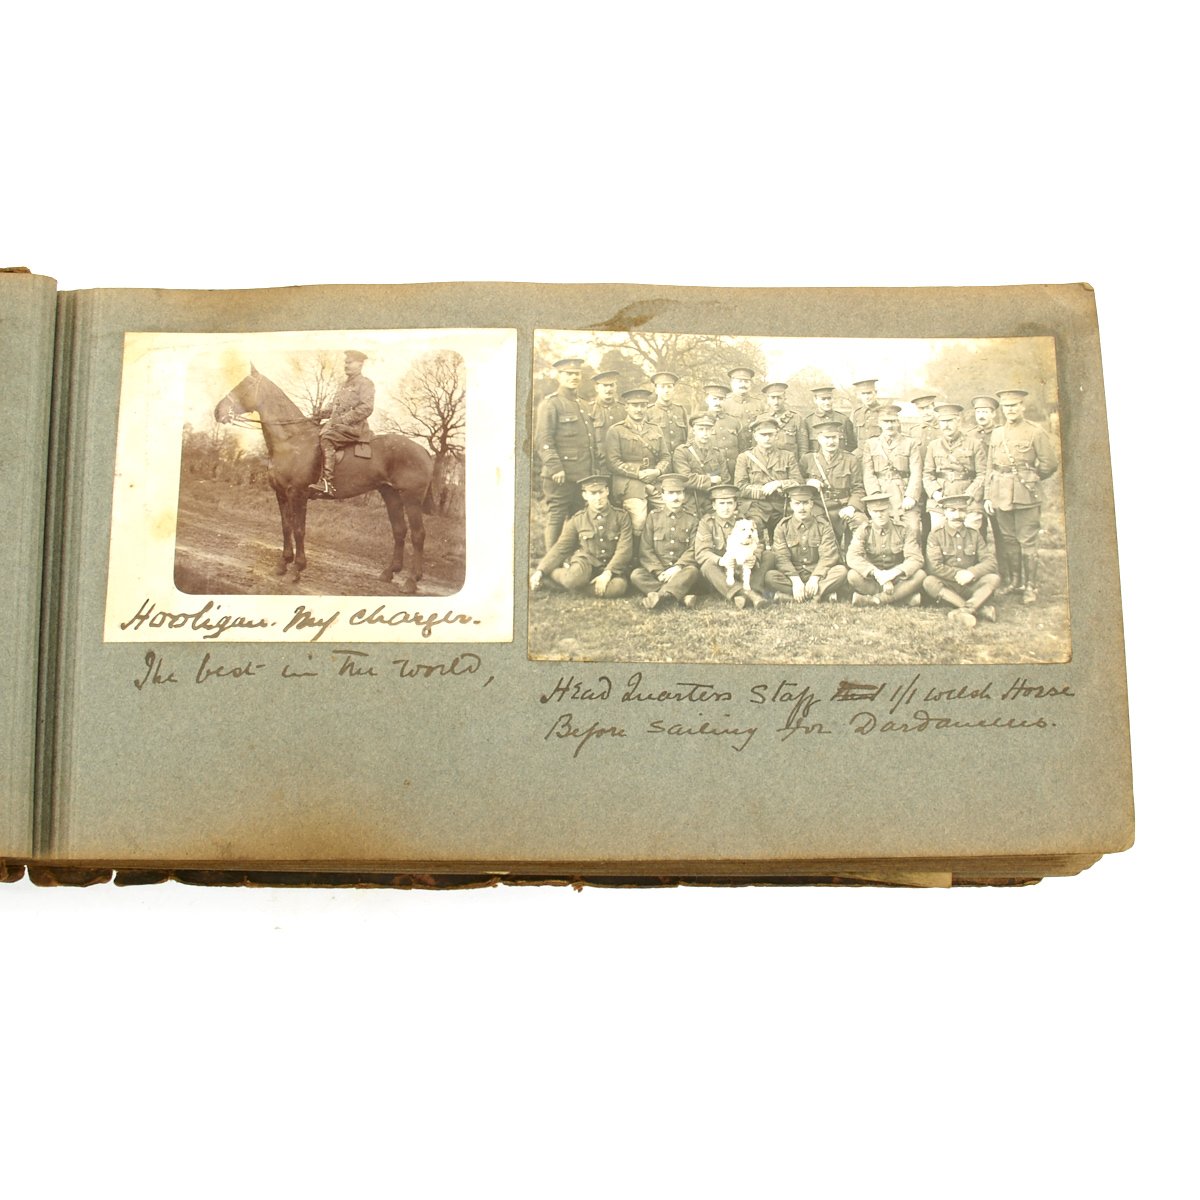 Hooligan. My charger.
The best in the world,
Head Quarters Staff 1/1 Welsh Horse
Before sailing for Dardanelles.